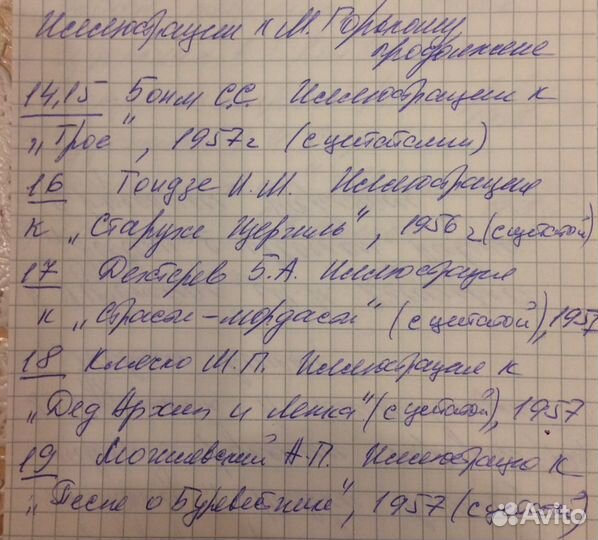 Иллюстрации к М. Горькому
продолжение
14,15 Бойм С.С. Иллюстрации к
„Трое", 1957г (с цитатами)
16 Тоидзе И.М. Иллюстрация
к „Старухе Изергиль", 1956г (с цитатой)
17 Дехтерев Б.А. Иллюстрация
к „Страсти-мордасти" (с цитатой), 1957
18 Клячко М.П. Иллюстрация к
„Дед Архип и Ленка" (с цитатой), 1957
19 Могилевский А.П. Иллюстрация к
„Песне о Буревестнике", 1957 (с цитатой)
Avito